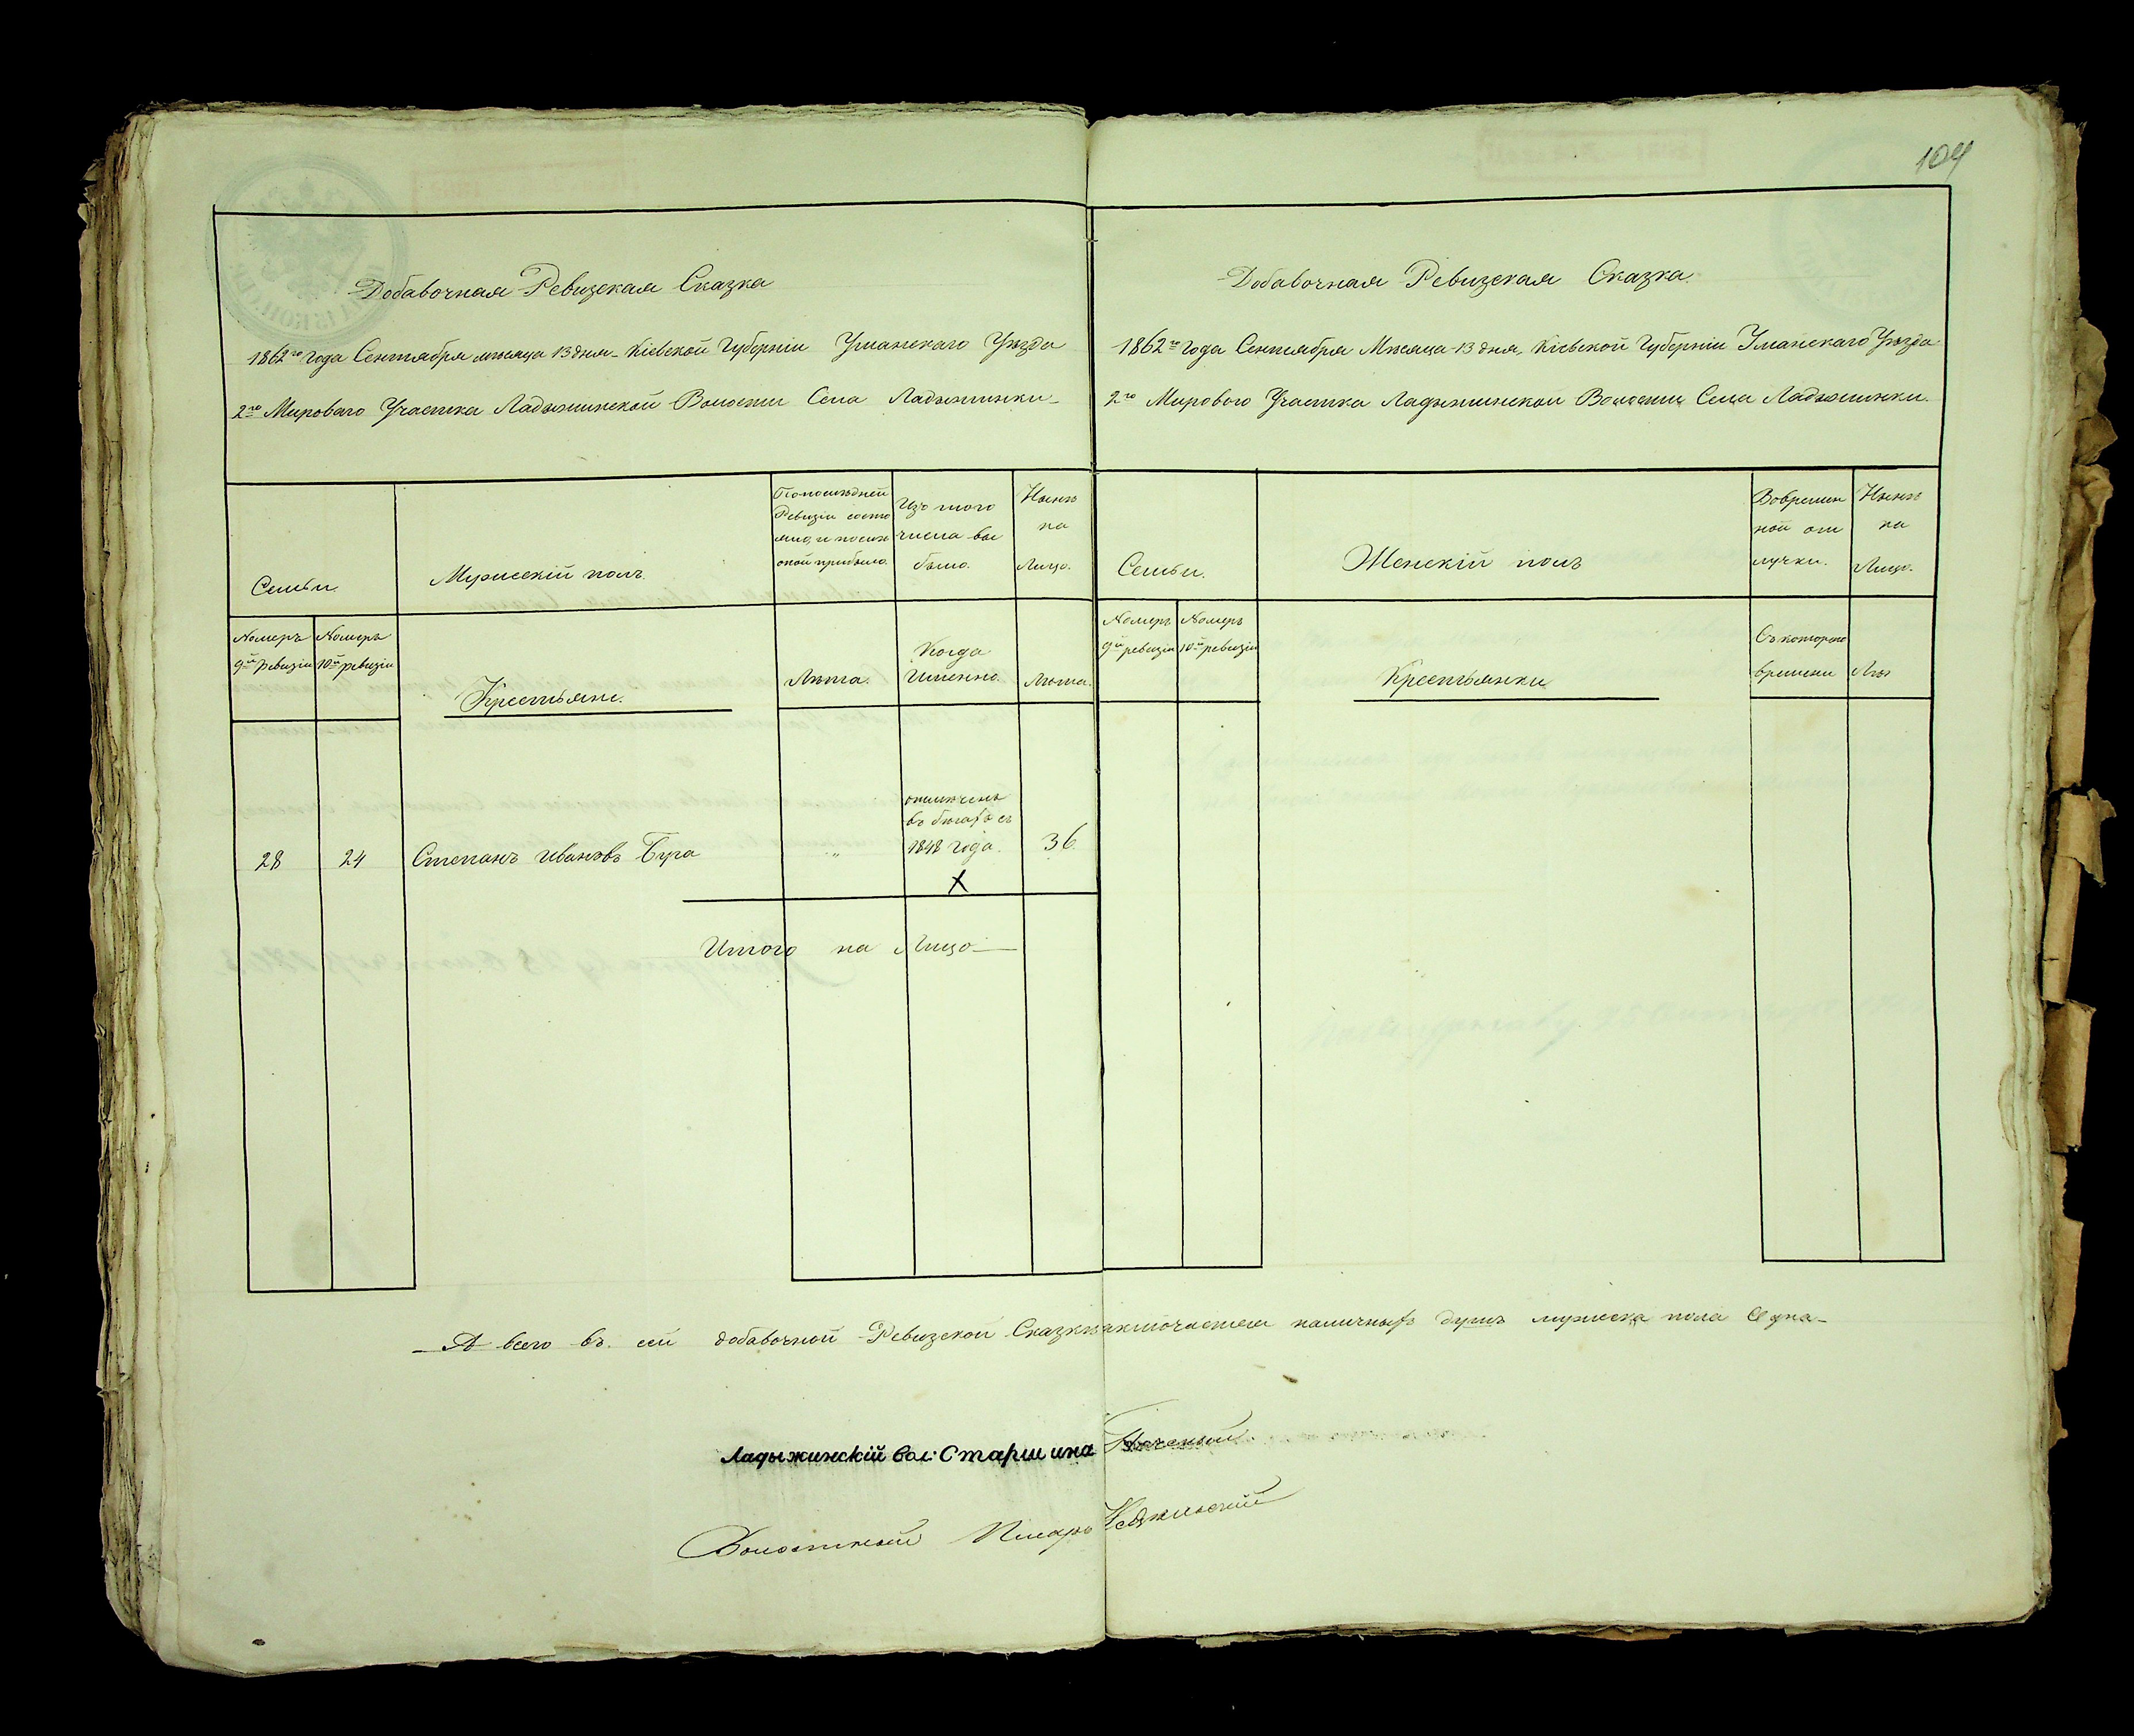 104
Добавочная Ревизская Сказка
1862го Года Сентября месяца 13 дня Кіевской Губерніи Уманскаго Уѣзда
2го Мироваго Участка Ладыжинской Волости Села Ладыжинки
Семьи.
Мужескій полъ.
По последней
Ревизіи состо
яло, и после
оной прибыло.
Изъ того
числа вы
было.
Нынѣ
на
Лицо.
Номеръ
9й Ревизіи
Номеръ
10й ревизіи
Крестьяне.
Лѣта.
Когда
Именно.
Лѣта.
28
24
Степанъ Ивановъ Бура
"
въ бѣгахъ съ
1848 года.
36.
X
Итого на Лицо
Добавочная Ревизская Сказка.
1862го Года Сентября Мѣсяца 13 дня, Кіевской Губерніи Уманскаго Уѣзда
2го Мирового Участка Ладыжинской Волости Села Ладыжинки.
Семьи.
Женскій полъ
Вовремен
ной от
лучки.
Нынѣ
на
Лицо.
Номеръ
9й ревизіи
Номеръ
10й ревизіи
Крестьянки
Съ которого
времени
Лѣт
А всего въ сей добавочной Ревизской Сказкѣ заключается наличныхъ душъ мужеска пола Одна
Ладыжинскій Вол: Старшина
Волостный Писарь